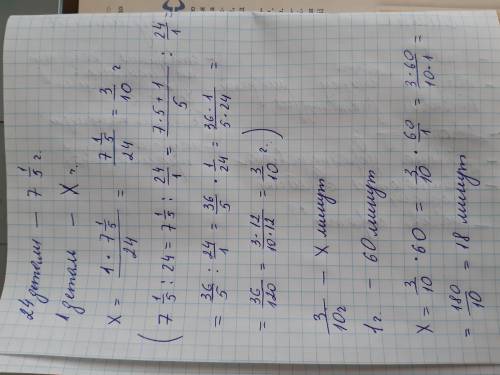 24 детали — 7 1/5 г.
1 деталь — X г.
X = (1 · 7 1/5)/24 = (7 1/5)/24 = 3/10 г
(7 1/5 : 24 = 7 1/5 : 24/1 = (7·5+1)/5 : 24/1 =
= 36/5 : 24/1 = 36/5 · 1/24 = (36·1)/(5·24) =
= 36/120 = (3·12)/(10·12) = 3/10 г.)
3/10 г — X минут
1 г. — 60 минут
X = 3/10 · 60 = 3/10 · 60/1 = (3·60)/(10·1) =
= 180/10 = 18 минут